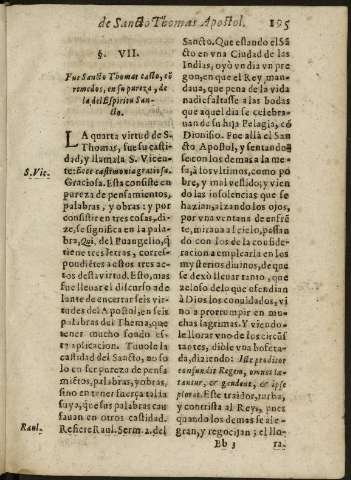 de Sancto Thomas Apostol. 195
§. VII.
Fue Sancto Thomas casto, cõ
remedos, en su pureza, de
la del Espiritu San-
cto.
LA quarta virtud de S.
Thomas, fue su casti-
dad, y llamala S. Vicen-
S. Vic.
te: Ecce castimonia gratiosa.
Graciosa. Esta consiste en
pureza de pensamientos,
palabras, y obras: y por
consistir en tres cosas, di-
ze, se significa en la pala-
bra, Qui, del Euangelio, q̃
tiene tres letras, corres-
pondiẽtes a estos tres ac-
tos desta virtud. Esto, mas
fue lleuar el discurso ade
lante de encerrar seis vir-
tudes del Apostol, en seis
palabras del Thema, que
tener mucho fondo es-
ta aplicacion. Tuuo le la
castidad del Sancto, no so
lo en ser pureza de pensa
miẽtos, palabras, y obras,
sino en tener fuerça tal la
suya, que sus palabras cau
sauan en otros castidad.
Raul.
Refiere Raul. Serm. 2. del
Sancto. Que estando el Sã
cto en vna Ciudad de las
Indias, oyò vn dia vn pre
gon, en que el Rey, man-
daua, que pena de la vida
nadie faltasse a las bodas
que aquel dia se celebra-
uan de su hija Pelagia, cõ
Dionisio. Fue allà el San
cto Apostol, y sentando
se con los demas a la me-
sa, à los vltimos, como po
bre, y mal vestido; y vien
do las insolencias que se
hazian, alzando los ojos,
por vna ventana de enfrẽ
te, miraua al cielo, passan
do con los de la conside-
racion a emplearla en los
mysterios diuinos, de que
se dexò lleuar tanto, que
zeloso de lo que ofendian
à Dios los conuidados, vi
no a prorrumpir en mu-
chas lagrimas. Y viendo-
le llorar vno de los circũs
tantes, dible vna bofeta-
da, diziendo: Iste proditor
confundit Regem, omnes læ-
tantur, & gaudent, & ipse
plorat. Este traidor, turba,
y contrista al Rey, pues
quando los demas se ale-
gran, y regocijan; el llo-
Bb 3 ra.